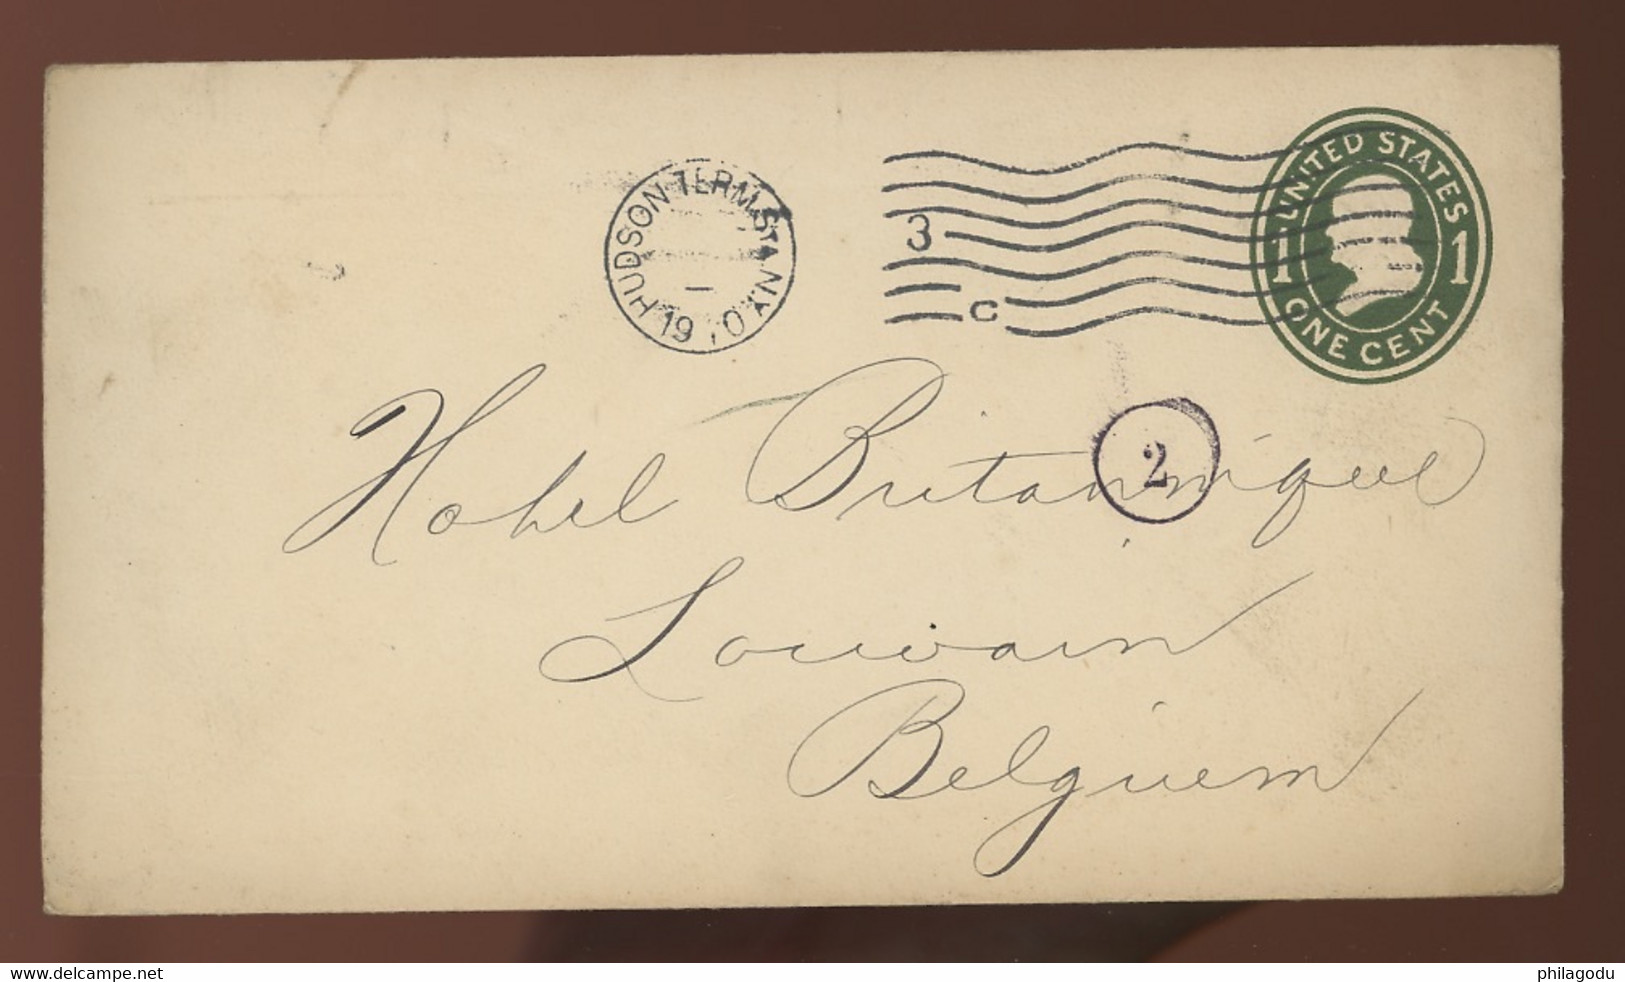 HUDSON TERM. STA. N.Y.
19 10
3
C
UNITED STATES
1 1
ONE CENT
2
Hotel Britannique
Louvain
Belgium
www.delcampe.net
philagodu